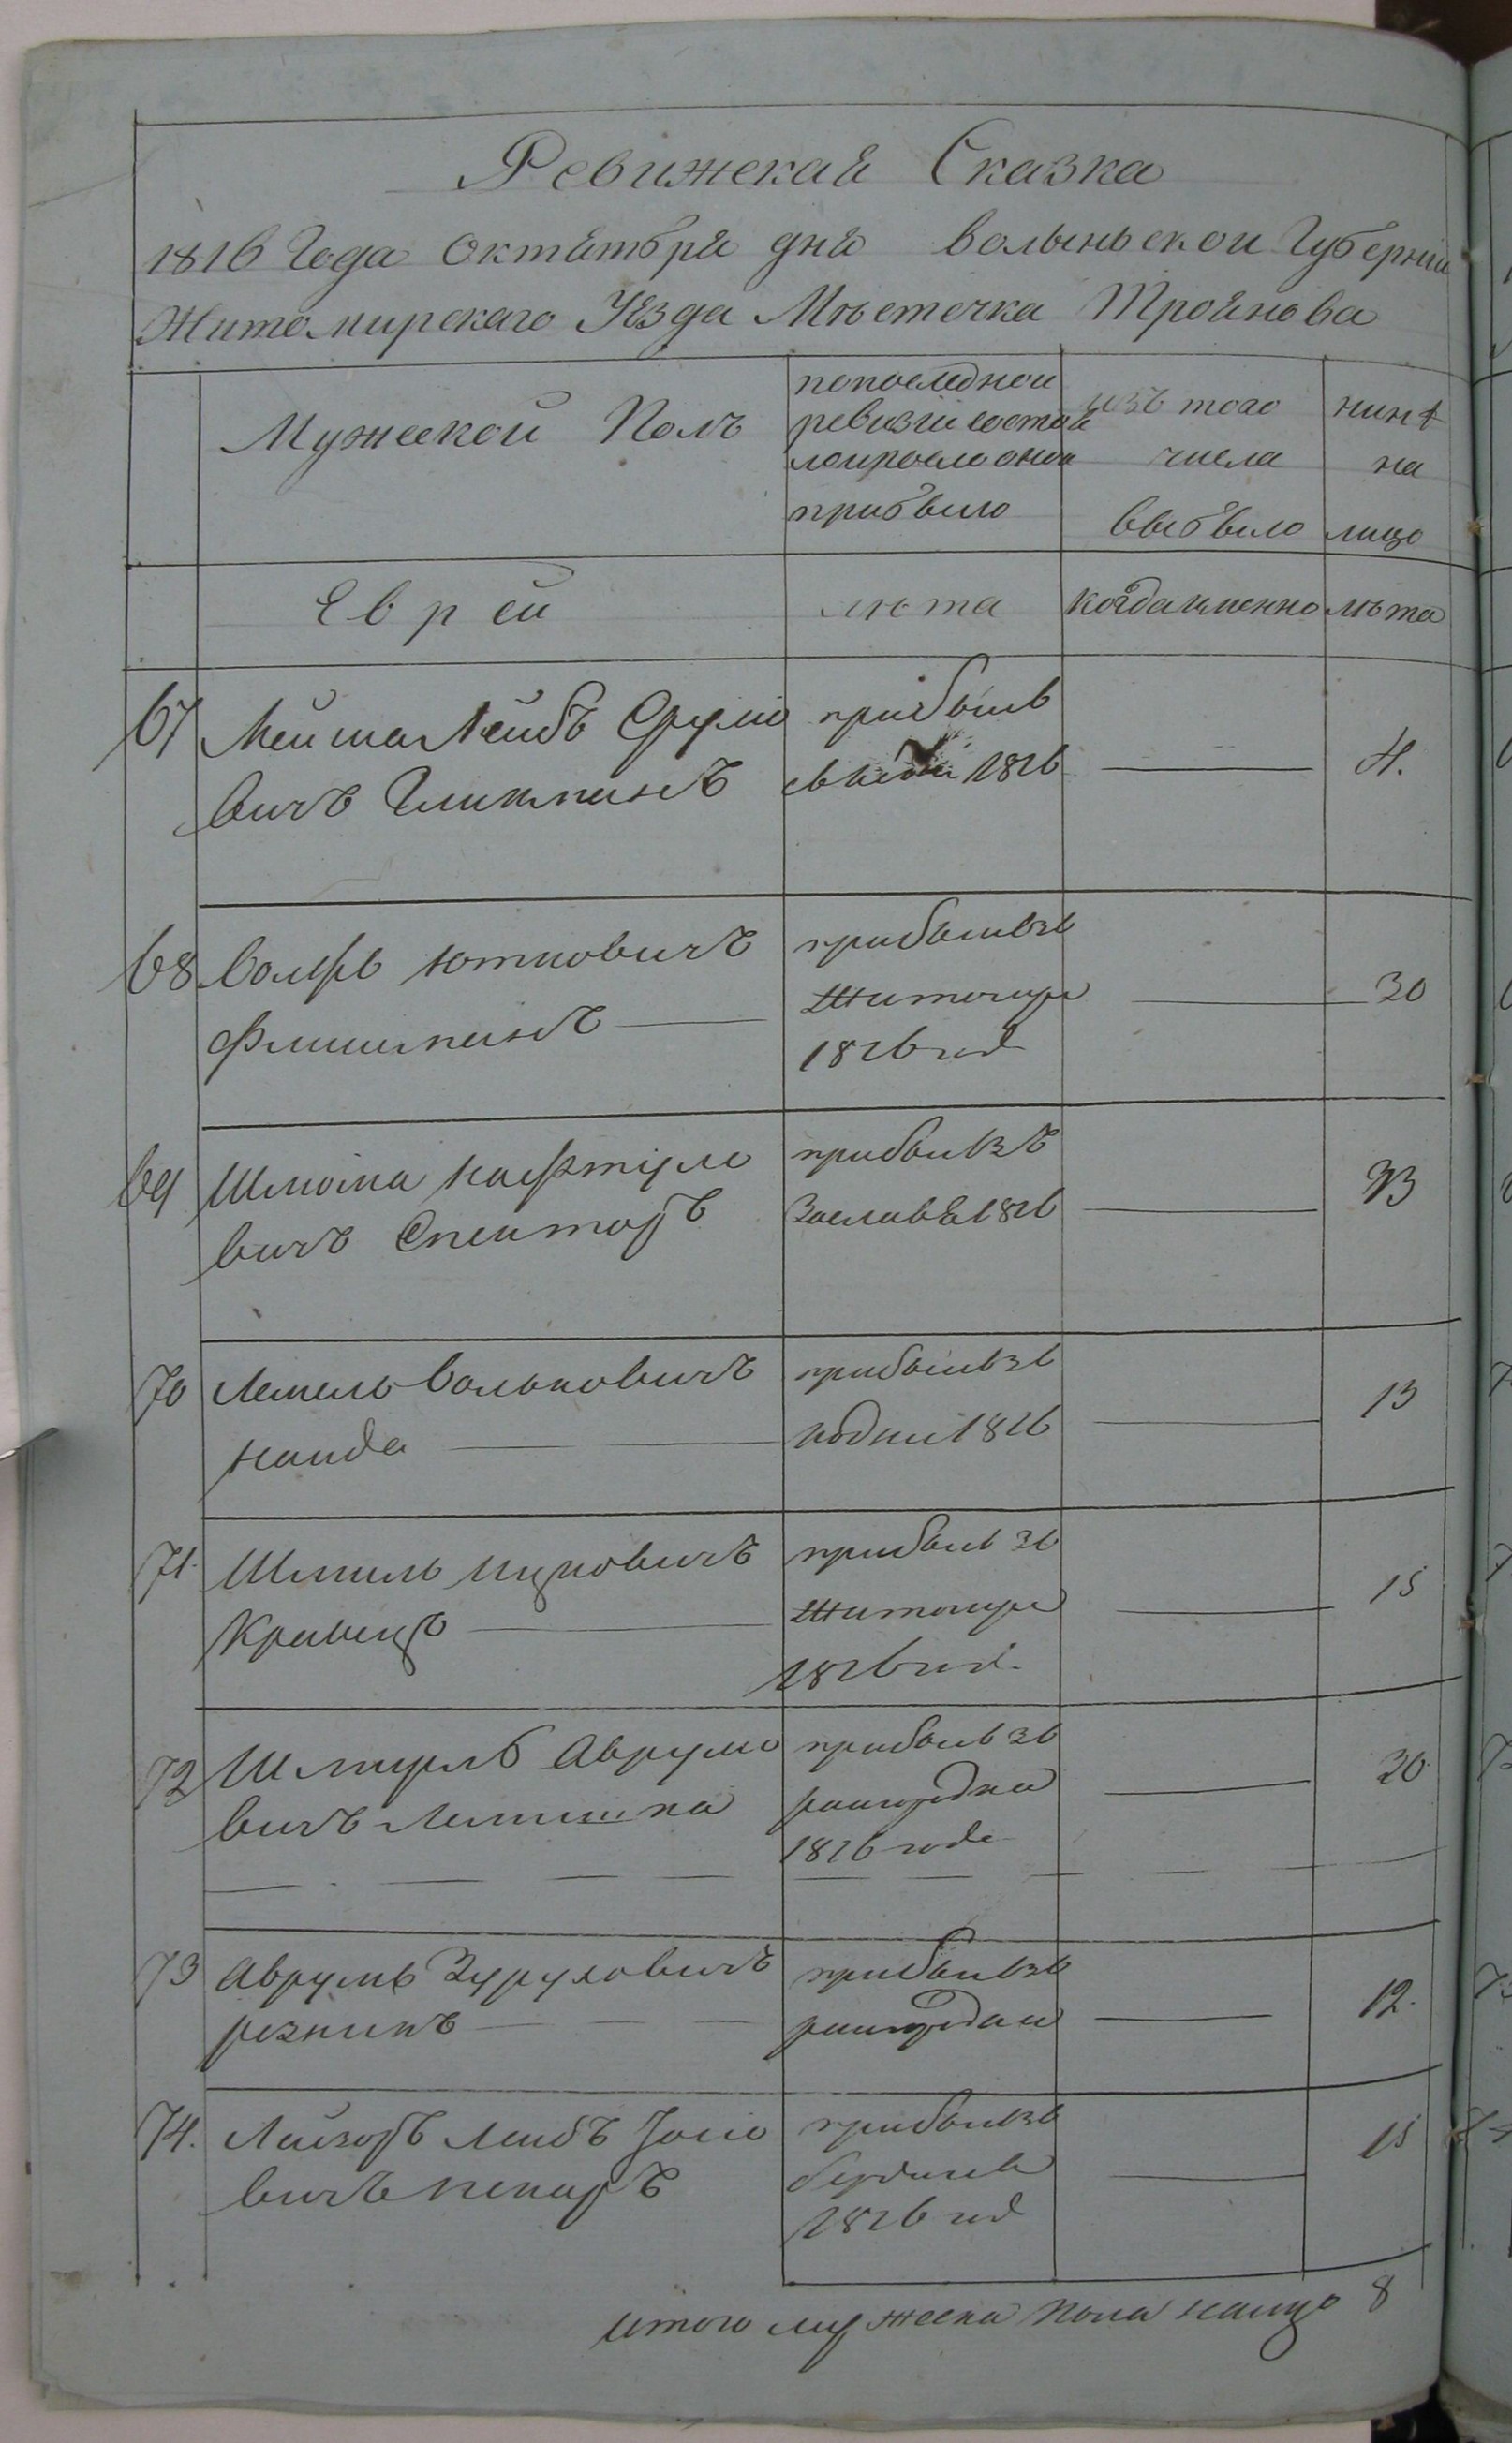 Ревижская Сказка
1816 Года Октятбря дня волыньской Губернии
Житомирскаго Уѣзда Мѣстечка Троянова
Мужеской Полъ
попоследнои
ревизіи состоя
лоипосло онои
прибвило
изъ того
числа
выбвило
нинѣ
на
лицо
Еврей
лѣта
когдаименно
лѣта
67
Лейбъ Срулио
вичъ
прибылъ
1816
4.
68
Волфъ Юткови​чъ
прибылизъ
Житомира
1816 год
30
69
Шлиома Нафтуло
вичъ Спекторъ
прибылизъ
Заславѣ 1816
33
70
Лемель Вольковичъ
прибылизъ
1816
13
71.
Шмиль Ицковичъ
Кравецъ
прибыл зъ
Житомира
1816 год.
15
72
Шмуль Аврумо
вичъ
прибыл зъ
1816 года
20
73
Аврумъ Зуруховичъ
резникъ
прибылизъ
12.
74.
Лейзоръ Лейбъ Иосио
вичъ пекаръ
прибылизъ
бердичева
1816 год
15
итого мужеска пола налицо 8